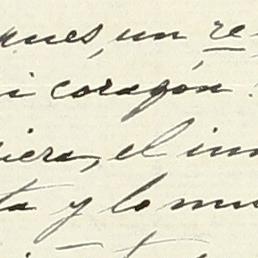 ques, un re-
i corazón.
iera, el inm
ta y lo mu